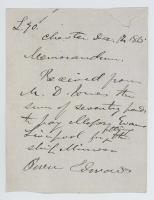 £70.
Chester Dec. 1865
Memorandum.
Received from
M. D. Jones the
sum of seventy pounds
to pay Messrs Evans
Liverpool for
ship Mimosa
Owen Edwards